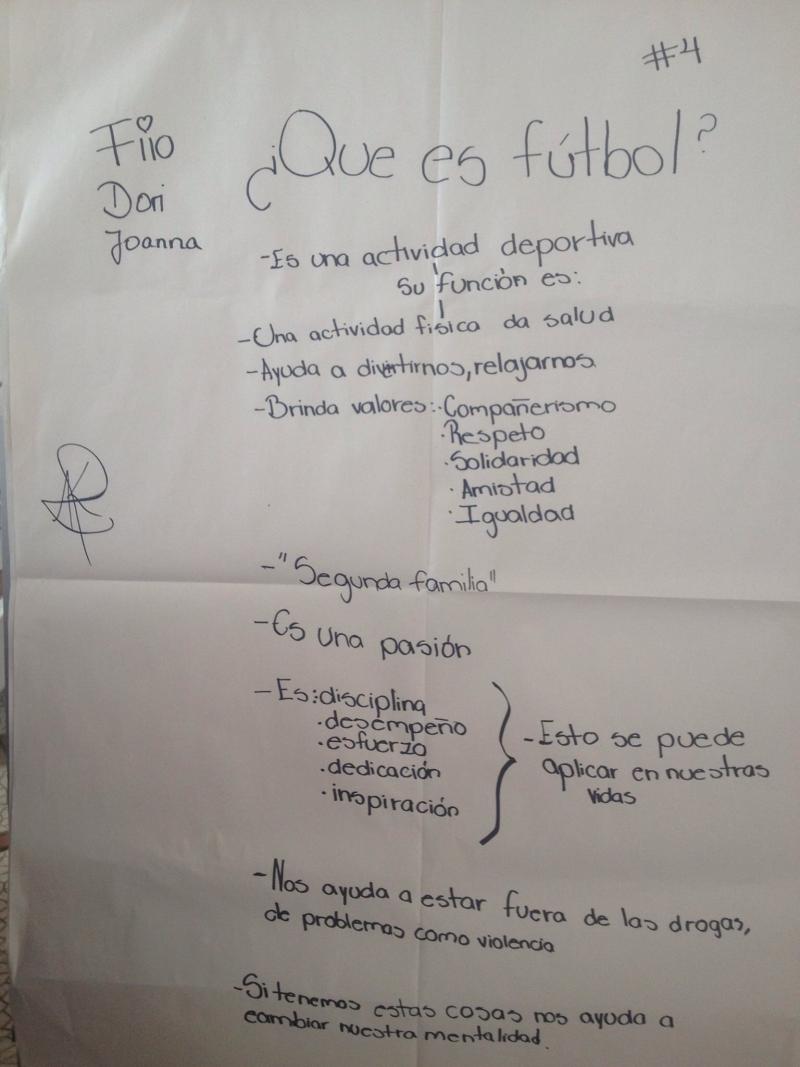 #4
Fiio
Dori
Joanna
¿Que es fútbol?
-Es una actividad deportiva
su función es:
-Una actividad física da salud
-Ayuda a divertirnos, relajarnos.
-Brinda valores: ·Compañerismo
·Respeto
·Solidaridad
·Amistad
·Igualdad
-"Segunda familia"
-Es una pasión
-Es: disciplina
·desempeño
·esfuerzo
·dedicación
·inspiración
-Esto se puede
aplicar en nuestras
vidas
-Nos ayuda a estar fuera de las drogas,
de problemas como violencia
-Si tenemos estas cosas nos ayuda a
cambiar nuestra mentalidad.